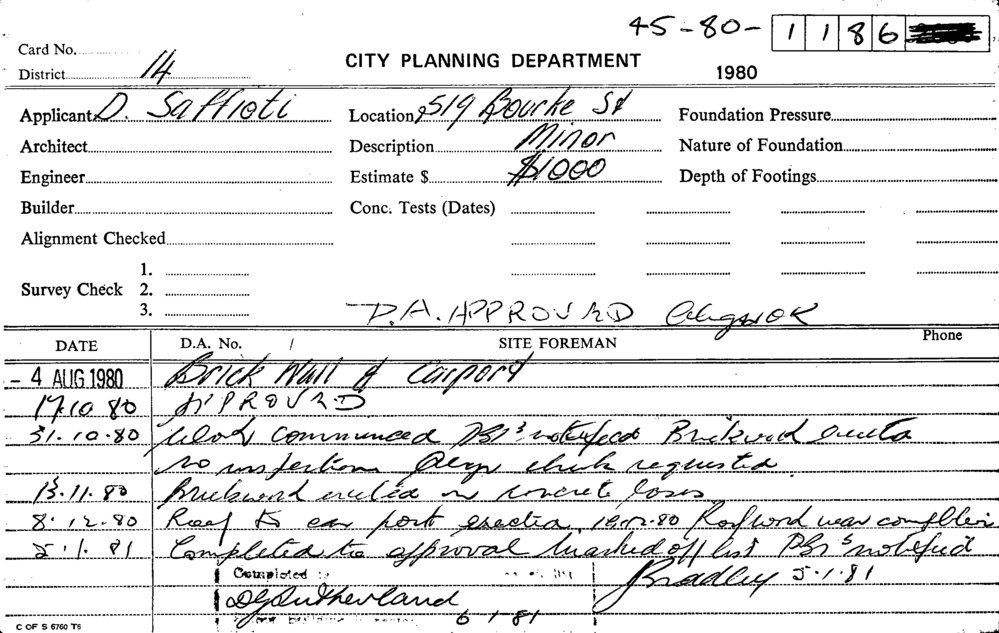 45-80- 1186
Card No.
District 14
CITY PLANNING DEPARTMENT
1980
Applicant D. Saffioti
Location 519 Bourke St
Foundation Pressure
Architect
Description Minor
Nature of Foundation
Engineer
Estimate $ $1000
Depth of Footings
Builder
Conc. Tests (Dates)
Alignment Checked
Survey Check
1.
2.
3.
D.A. APPROVED OK
DATE D.A. No. / SITE FOREMAN Phone
- 4 AUG 1980 Brick Wall & Carport
17.10.80 APPROVED
31.10.80 Work commenced notified Brickwork
No inspections check requested
13.11.80 Brickwork erected on concrete
8.12.80 Roof to car port erected 80 Roofwork near
5.1.81 Completed to approval marked off list notified
Completed
Bradley 5.1.81
DG Sutherland
6 1 81
C OF S 6760 T6